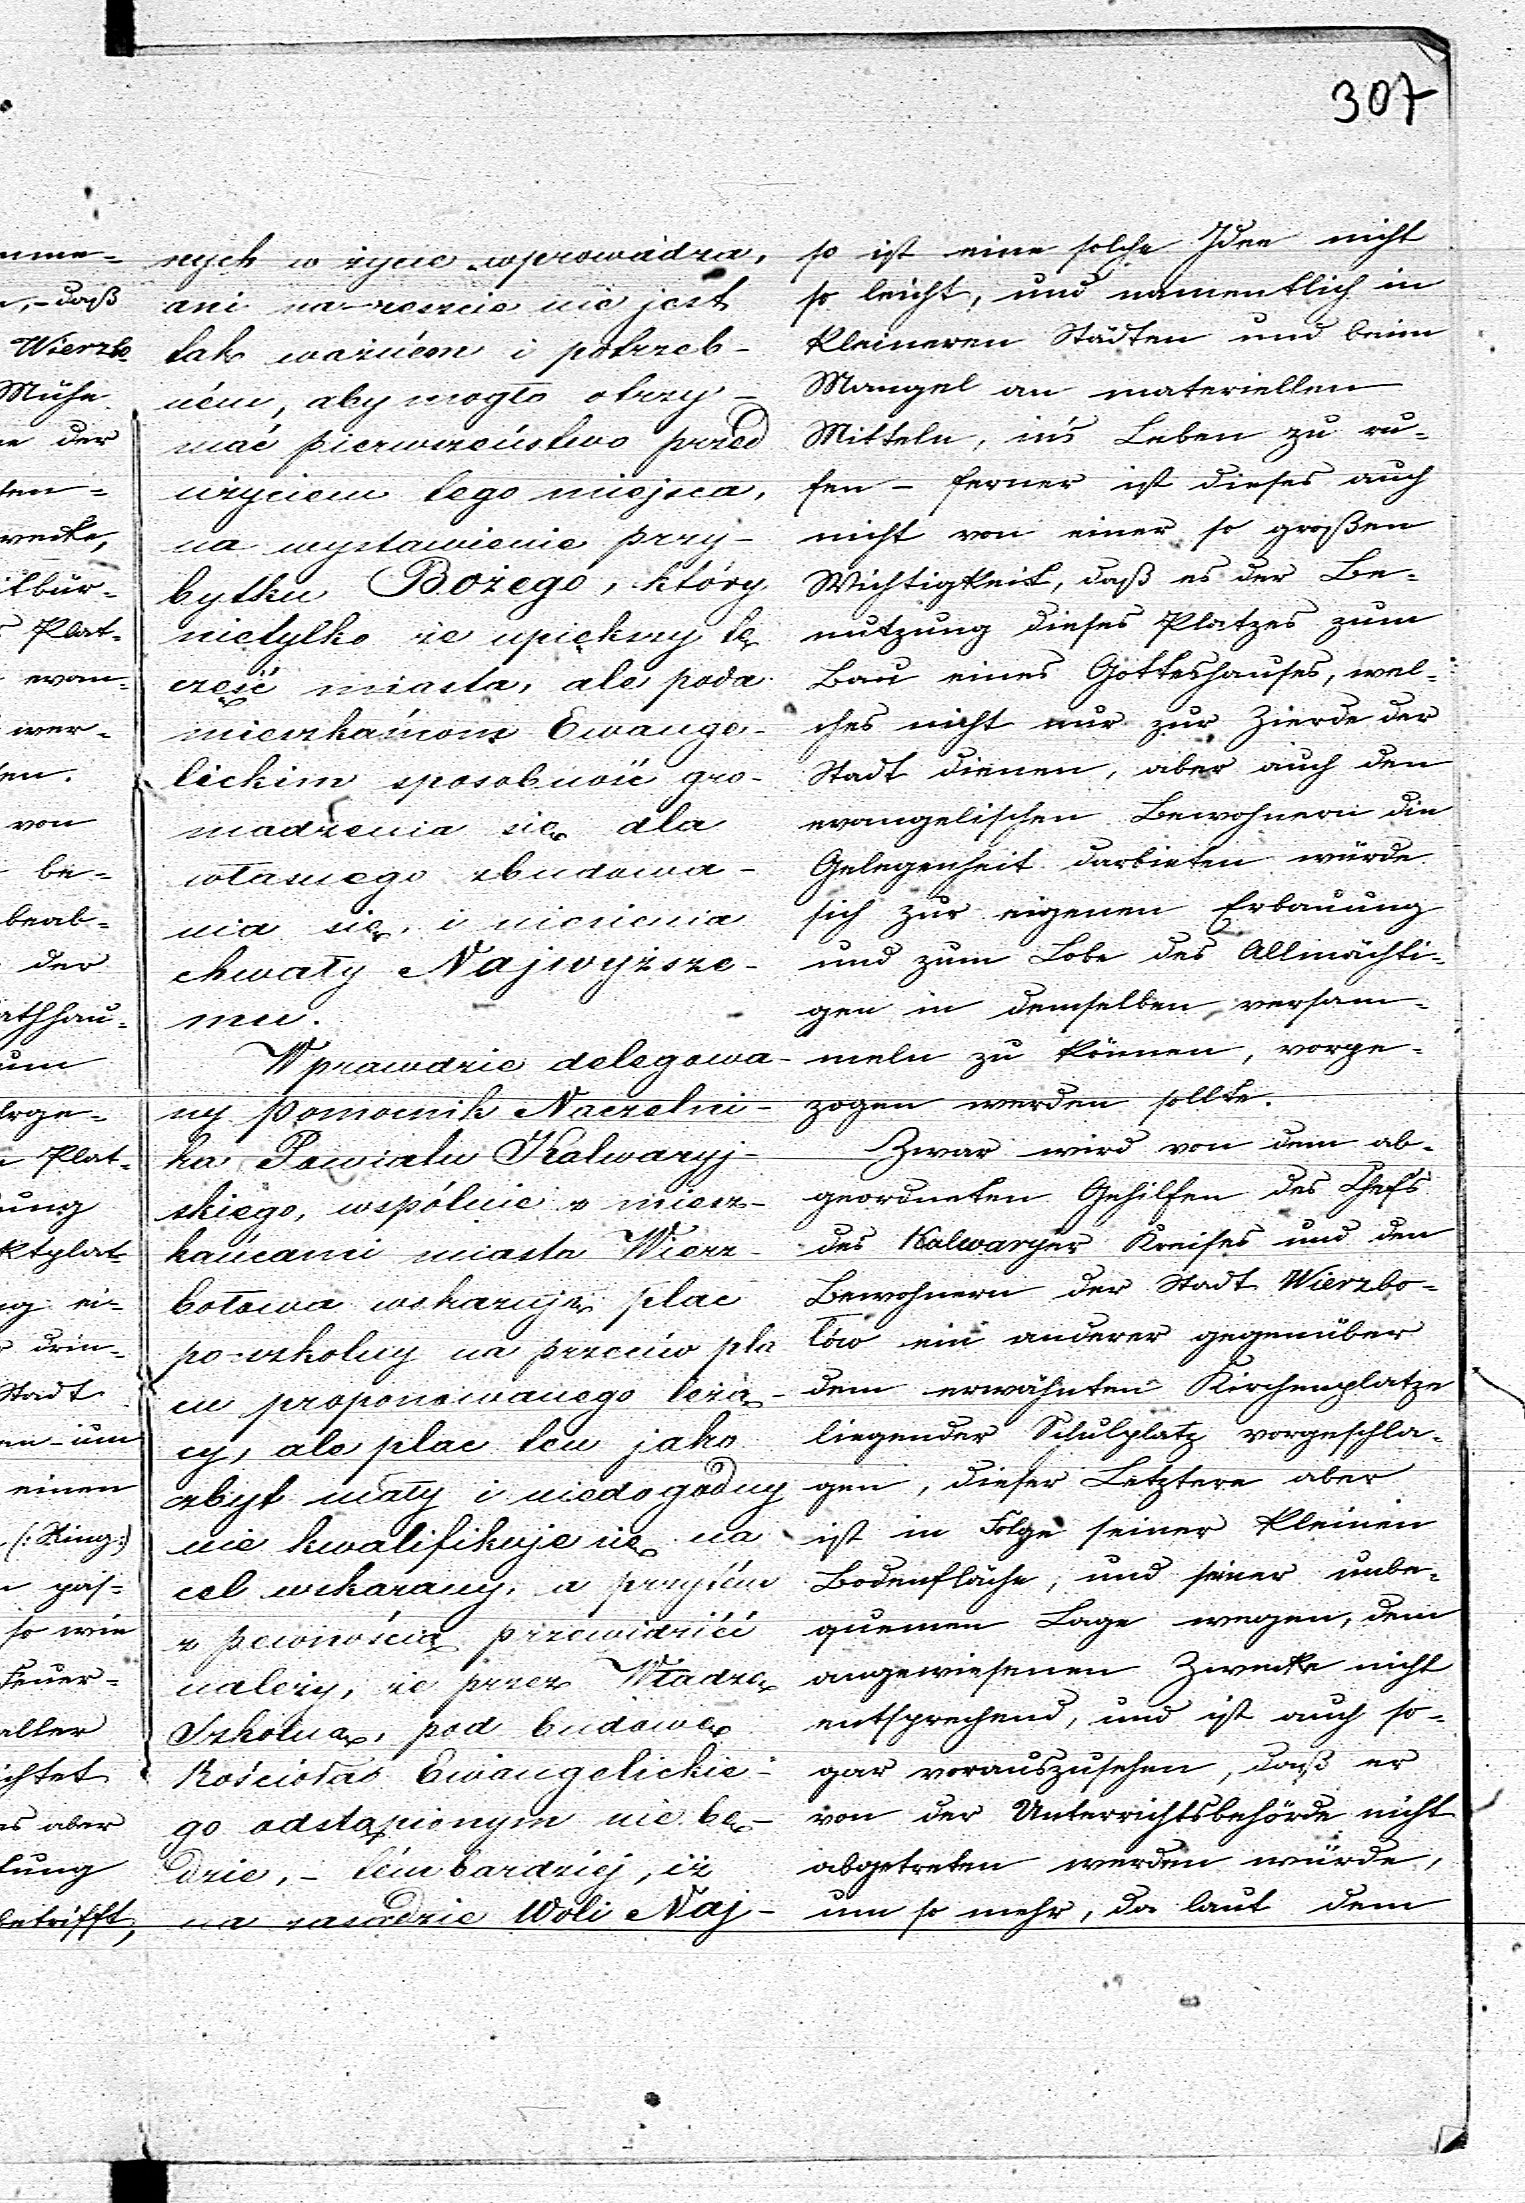 307
mme-
, - daß
Wierzbo
Mühe
e der
ten-
wecke,
itbür-
s Plat-
evan-
wer-
en.
von
be-
beab-
der
athhau-
um
rge-
n Plat-
ung
ktplat-
ng ei-
drin-
Stadt
en - um
einen
(: Ring :)
n pas-
so wie
Feuer-
aller
ichtet
as aber
tung
betrifft,
nych w życie wprowadza,
ani na-reszcie nie jest
tak ważném i potrzeb-
ném, aby mogło otrzy-
mać pierwszeństwo przed
użyciem tego miejsca,
na wystawienie przy-
bytku Bożego, który
nietylko że upiększy tę
część miasta, ale poda
mieszkańcom Ewange-
lickim sposobność gro-
madzenia się dla
własnego zbudowa-
nia się, i niesienia
chwały Najwyższe-
mu.
Wprawdzie delegowa-
ny Pomocnik Naczelni-
ka Powiatu Kalwaryj-
skiego, wspólnie z miesz-
kańcami miasta Wierz-
bołowa wskazuje plac
po-szkolny na przeciw pla
cu proponowanego leżą-
cy, ale plac ten jako
zbyt mały i niedogodny
nie kwalifikuje się na
cel wskazany, a przytém
z pewnością przewidzić
należy, że przez Władzę
Szkolną, pod budowę
Kościoła Ewangelickie-
go odstąpionym nie bę-
dzie, - tém bardziej, iż
na zasadzie Woli Naj-
so ist eine solche Idee nicht
so leicht, und namentlich in
kleineren Städten und beim
Mangel an materiellen
Mitteln, in's Leben zu ru-
fen - ferner ist dieses auch
nicht von einer so großen
Wichtigkeit, daß es der Be-
nutzung dieses Platzes zum
Bau eines Gotteshauses, wel-
ches nicht nur zur Zierde der
Stadt dienen, aber auch den
evangelischen Bewohnern die
Gelegenheit darbieten würde
sich zur eigenen Erbauung
und zum Lobe des Allmächti-
gen in demselben versam-
meln zu können, vorge-
zogen werden sollte.
Zwar wird von dem ab-
geordneten Gehilfen des Chefs
des Kalwaryer Kreises und den
Bewohnern der Stadt Wierzbo-
łow ein anderer gegenüber
dem erwähnten Kirchenplatze
liegender Schulplatz vorgeschla-
gen, dieser Letztere aber
ist in Folge seiner kleinen
Bodenfläche, und seiner unbe-
quemen Lage wegen, dem
angewiesenen Zwecke nicht
entsprechend, und ist auch so-
gar vorauszusehen, daß er
von der Unterrichtsbehörde nicht
abgetreten werden würde,
um so mehr, da laut dem